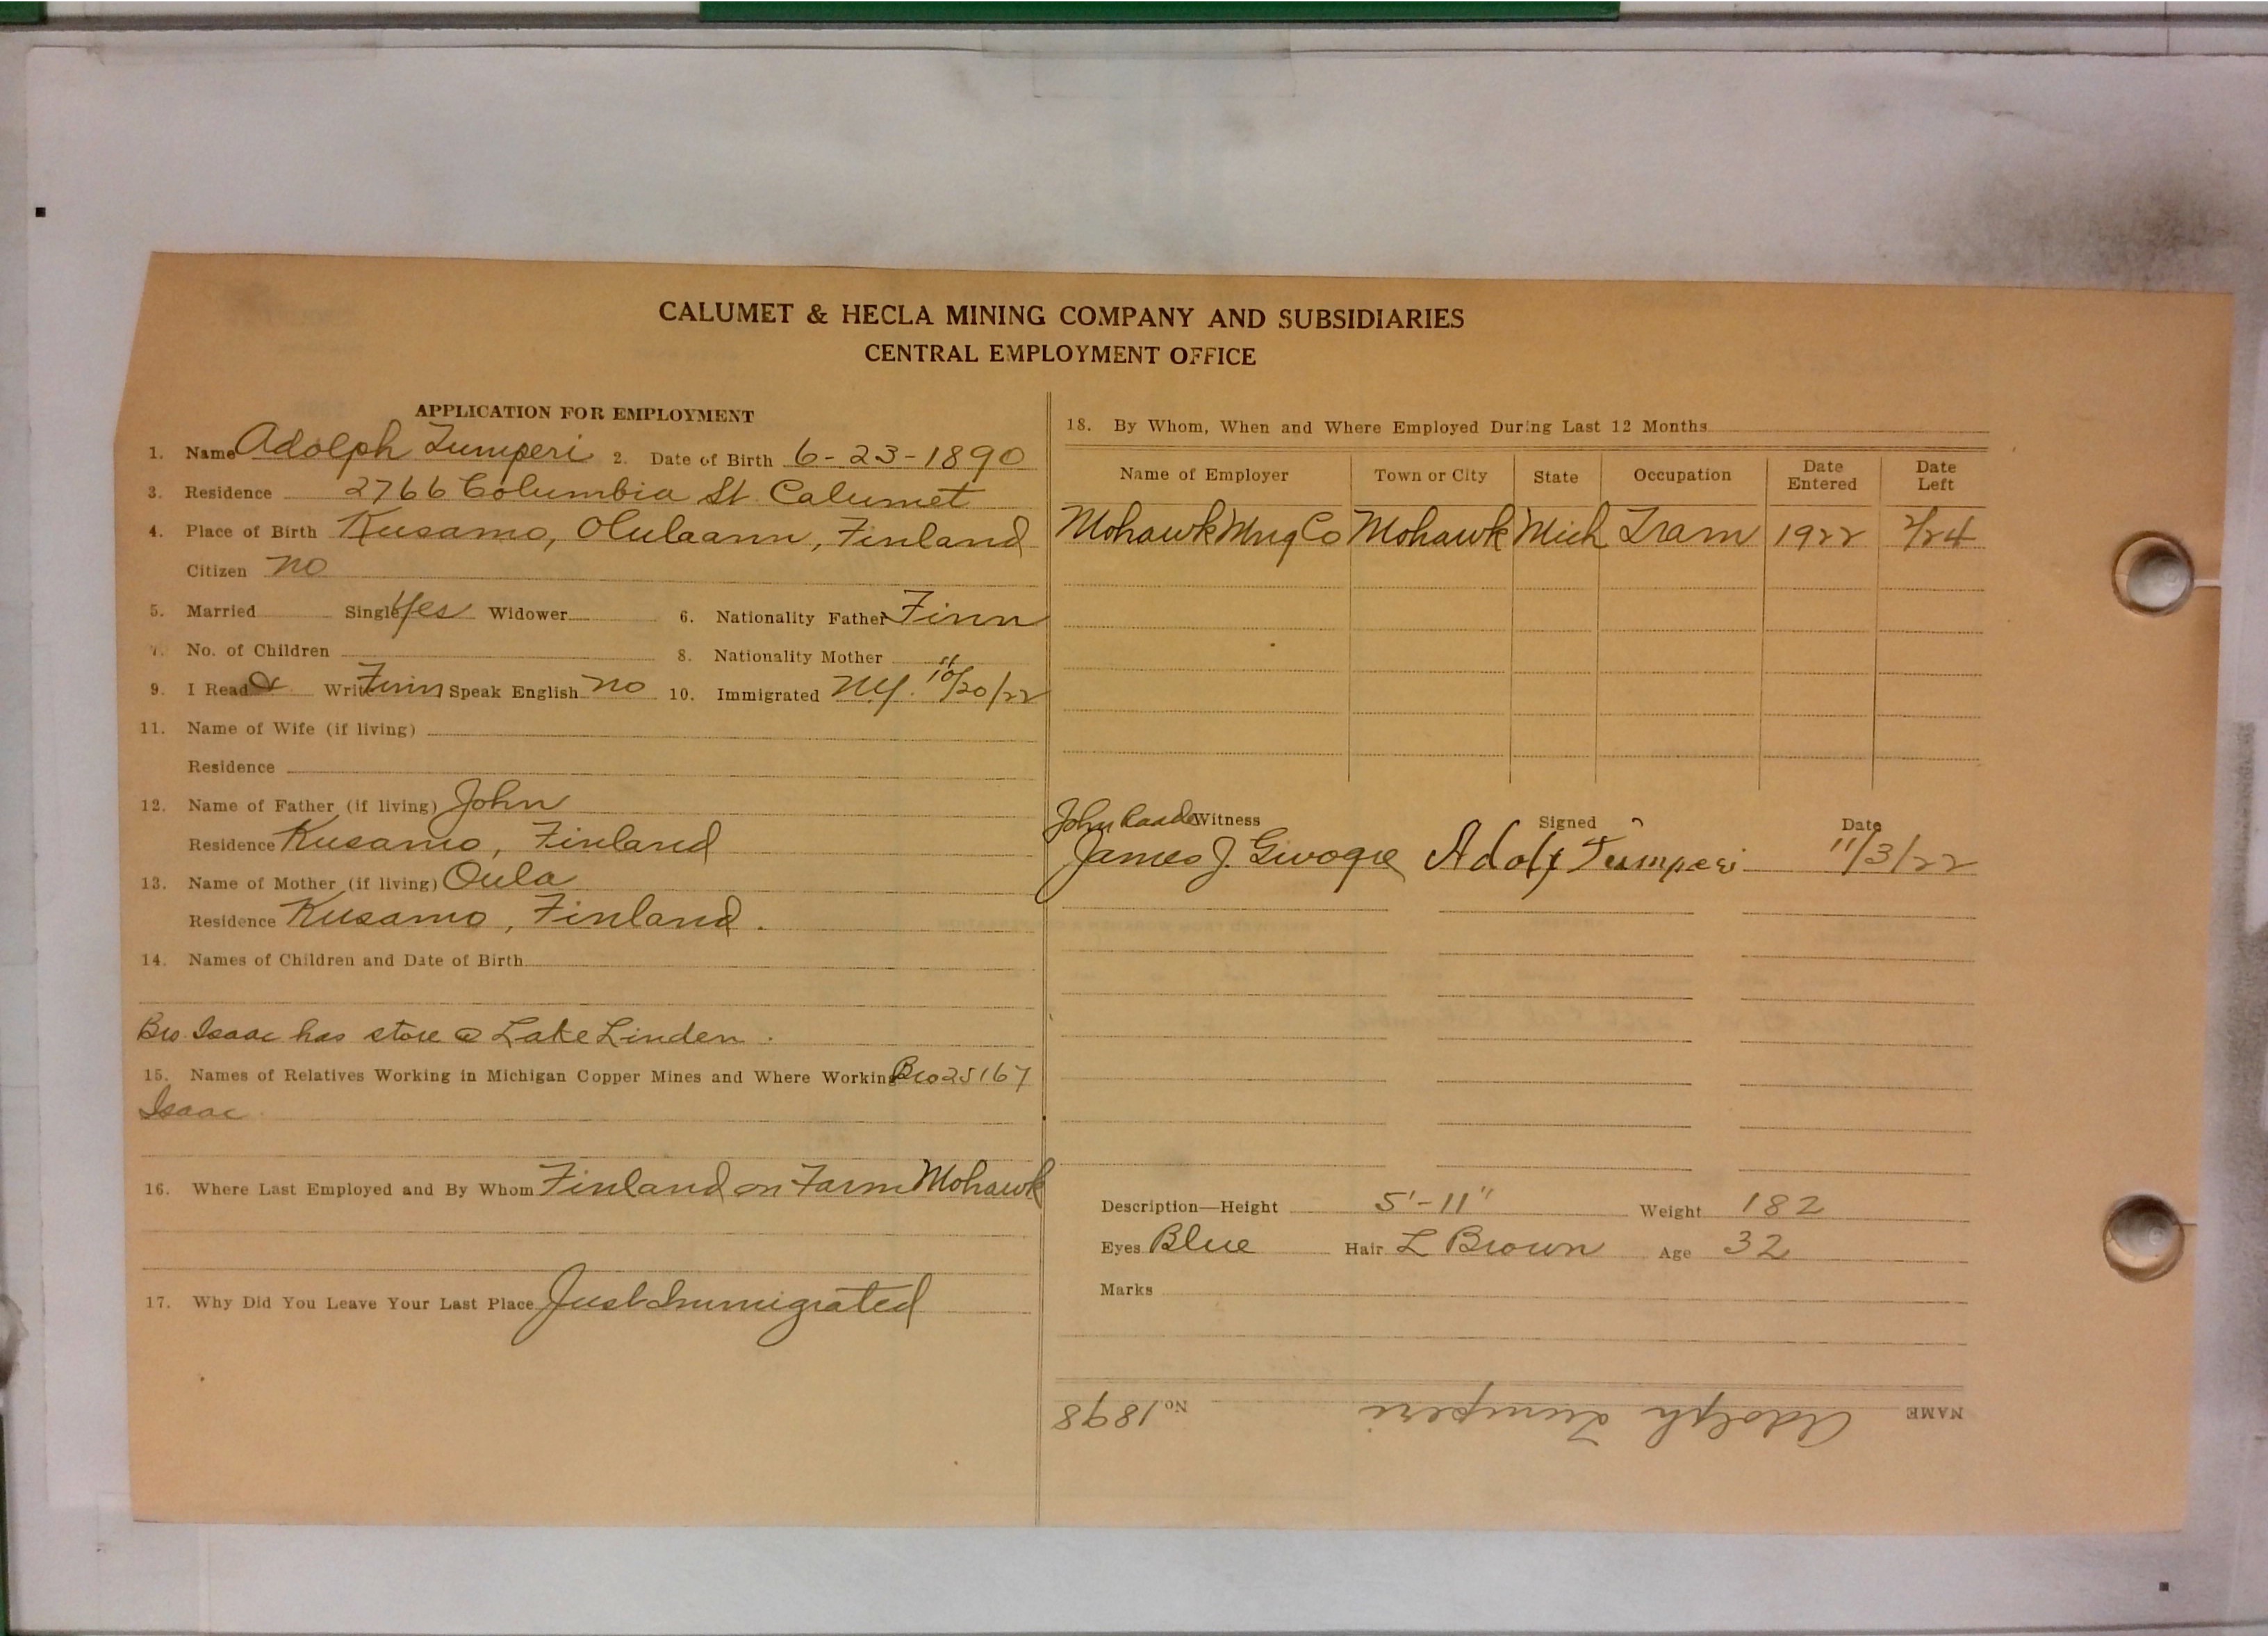 CALUMET & HECLA MINING COMPANY AND SUBSIDIARIES
CENTRAL EMPLOYMENT OFFICE
APPLICATION FOR EMPLOYMENT
1. Name Adolph Tumperi 2. Date of Birth 6-23-1890
3. Residence 2766 Columbia St. Calumet
4. Place of Birth Kusamo, Olulaann, Finland
Citizen no
5. Married Single Yes Widower 6. Nationality Father Finn
7. No. of Children 8. Nationality Mother "
9. I Read & Write Finn Speak English no 10. Immigrated N.Y. 10/20/22
11. Name of Wife (if living)
Residence
12. Name of Father (if living) John
Residence Kusamo, Finland
13. Name of Mother (if living) Oula
Residence Kusamo, Finland.
14. Names of Children and Date of Birth
Bro. Isaac has store @ Lake Linden.
15. Names of Relatives Working in Michigan Copper Mines and Where Working Bro 25167
Isaac
16. Where Last Employed and By Whom Finland on Farm Mohawk
17. Why Did You Leave Your Last Place Just Immigrated
18. By Whom, When and Where Employed During Last 12 Months
Name of Employer Town or City State Occupation Date Entered Date Left
Mohawk Mng Co Mohawk Mich Tram 1922 2/24
John Witness Signed Date
James J. Adolf Tumperi 11/3/22
Description—Height 5'-11" Weight 182
Eyes Blue Hair L Brown Age 32
Marks
NAME Adolph Tumperi No. 1898